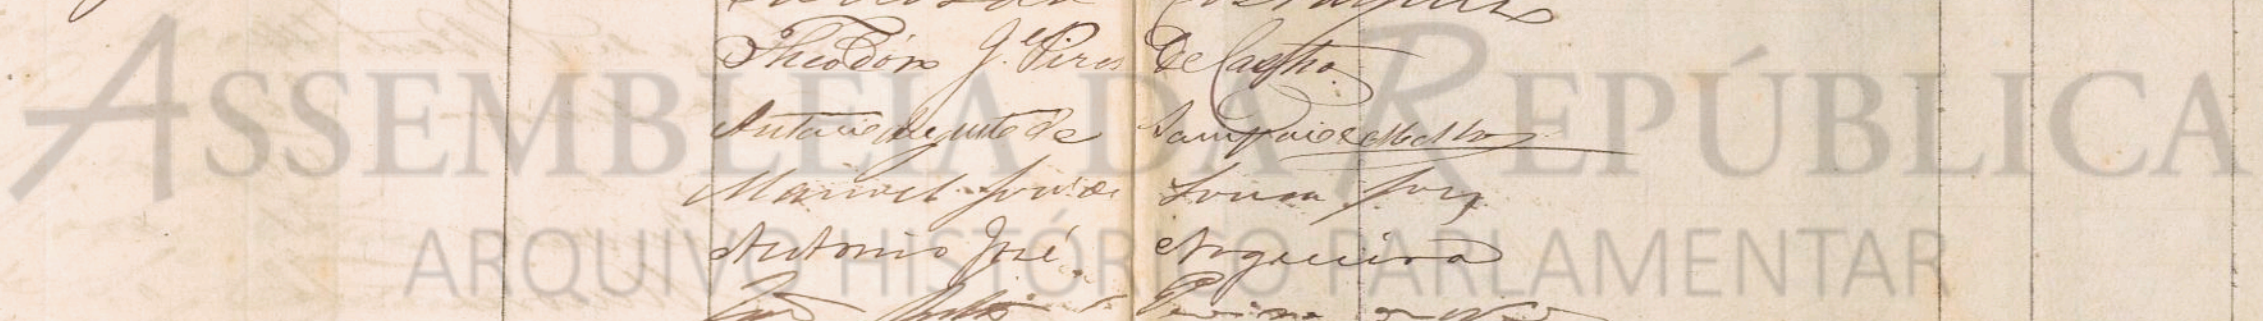 Theodóro J.e Pires de Castro
Antonio Augusto de Sampaio e Mello
Manoel José de Sousa Jorge
Antonio José Nogueira
ASSEMBLEIA DA REPÚBLICA
ARQUIVO HISTÓRICO PARLAMENTAR